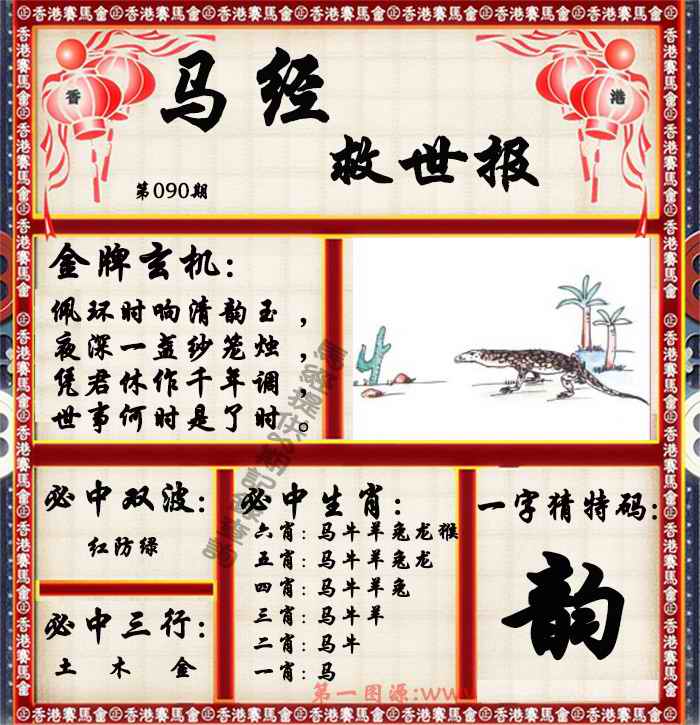 香港賽馬會
香
港
马经
救世报
第090期
金牌玄机：
佩环时响清韵玉，
夜深一盏纱笼烛，
凭君休作千年调，
世事何时是了时。
必中双波：
红防绿
必中三行：
土 木 金
必中生肖：
六肖：马牛羊兔龙猴
五肖：马牛羊兔龙
四肖：马牛羊兔
三肖：马牛羊
二肖：马牛
一肖：马
一字猜特码：
韵
第一图源:www